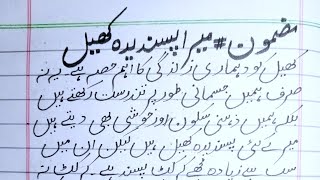 مضمون # میرا پسندیدہ کھیل
کھیل کود ہماری زندگی کا اہم حصہ ہے۔ یہ نہ
صرف ہمیں جسمانی طور پر تندرست رکھتے ہیں
بلکہ ہمیں ذہنی سکون اور خوشی بھی دیتے ہیں
میرے کئی پسندیدہ کھیل ہیں لیکن ان میں
سب سے زیادہ مجھے کرکٹ پسند ہے۔ کرکٹ نہ